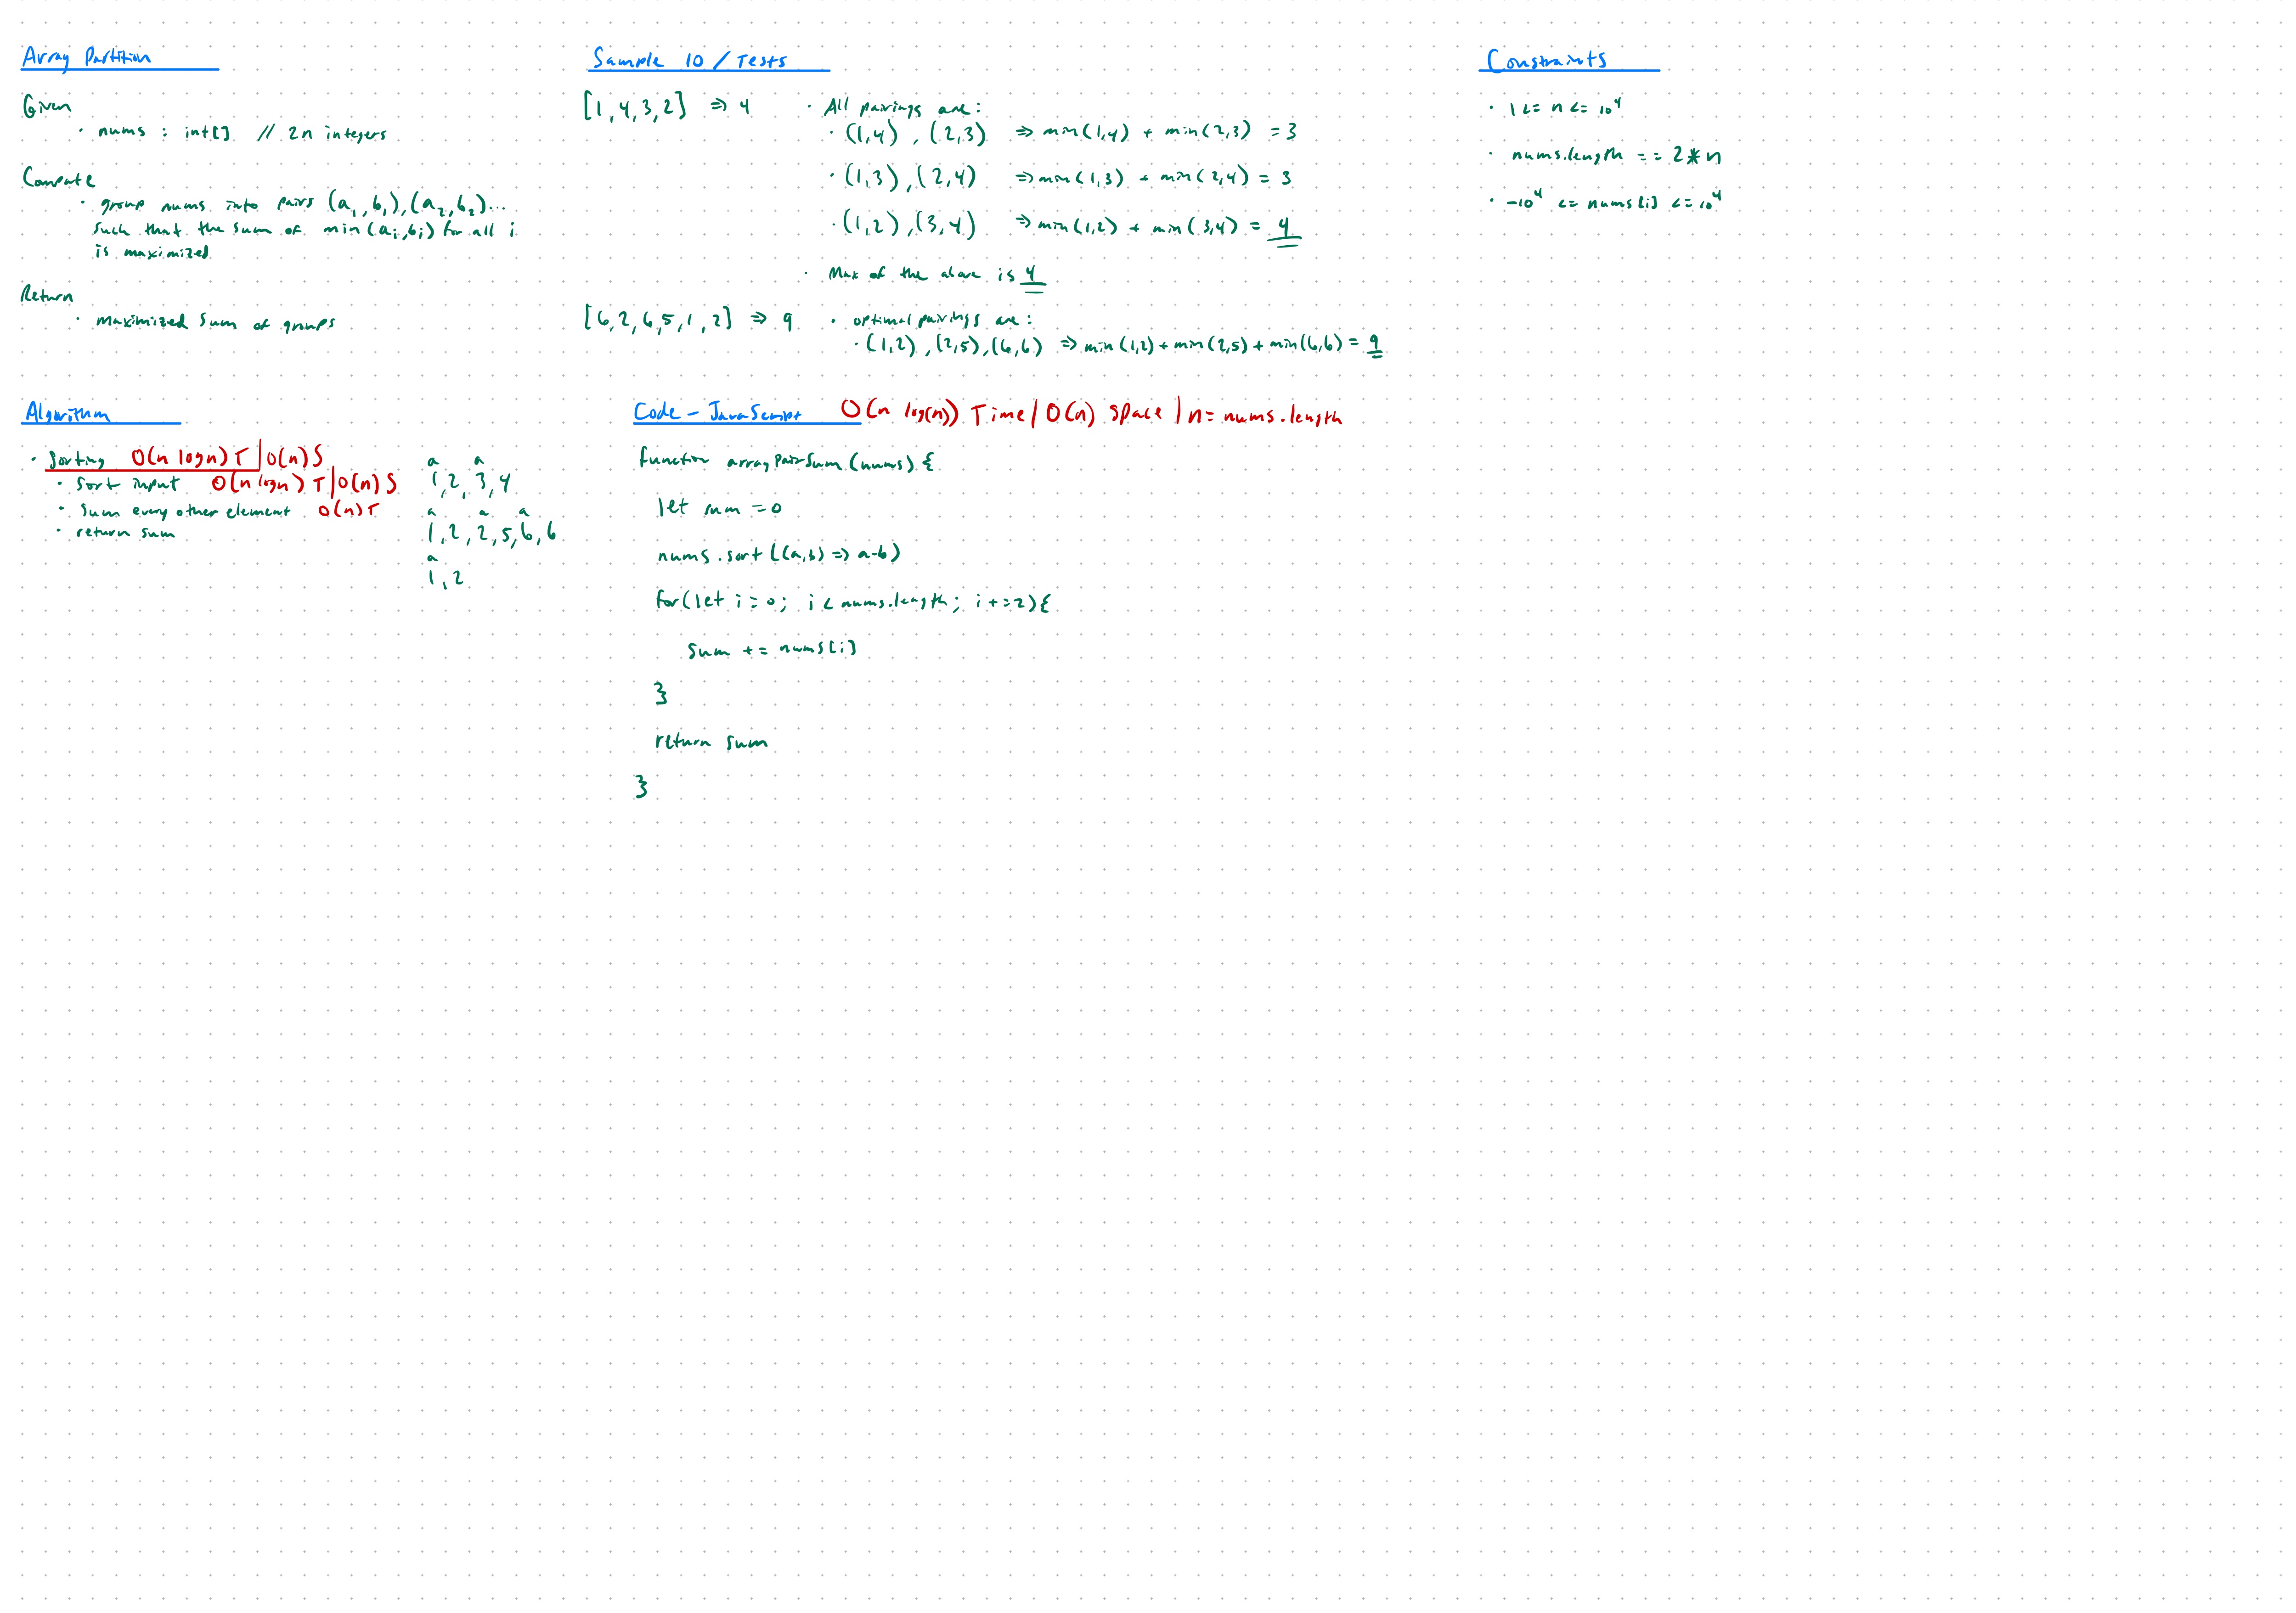 Array Partition
Given
· nums : int[] // 2n integers
Compute
· group nums into pairs (a₁,b₁),(a₂,b₂)...
such that the sum of min(aᵢ,bᵢ) for all i
is maximized
Return
· maximized sum of groups
Sample IO / Tests
[1,4,3,2] ⇒ 4
· All pairings are:
· (1,4) , (2,3) ⇒ min(1,4) + min(2,3) = 3
· (1,3) , (2,4) ⇒ min(1,3) + min(2,4) = 3
· (1,2) , (3,4) ⇒ min(1,2) + min(3,4) = 4
· Max of the above is 4
[6,2,6,5,1,2] ⇒ 9
· optimal pairings are:
· (1,2) , (2,5) , (6,6) ⇒ min(1,2) + min(2,5) + min(6,6) = 9
Constraints
· 1 <= n <= 10⁴
· nums.length == 2 * n
· -10⁴ <= nums[i] <= 10⁴
Algorithm
· Sorting O(n logn) T | O(n) S
· Sort input O(n logn) T | O(n) S
· Sum every other element O(n) T
· return sum
a a
1,2,3,4
a a a
1,2,2,5,6,6
a
1,2
Code - JavaScript O(n log(n)) Time | O(n) Space | n = nums.length
function arrayPairSum(nums) {
let sum = 0
nums.sort((a,b) => a-b)
for(let i = 0; i < nums.length; i += 2){
sum += nums[i]
}
return sum
}